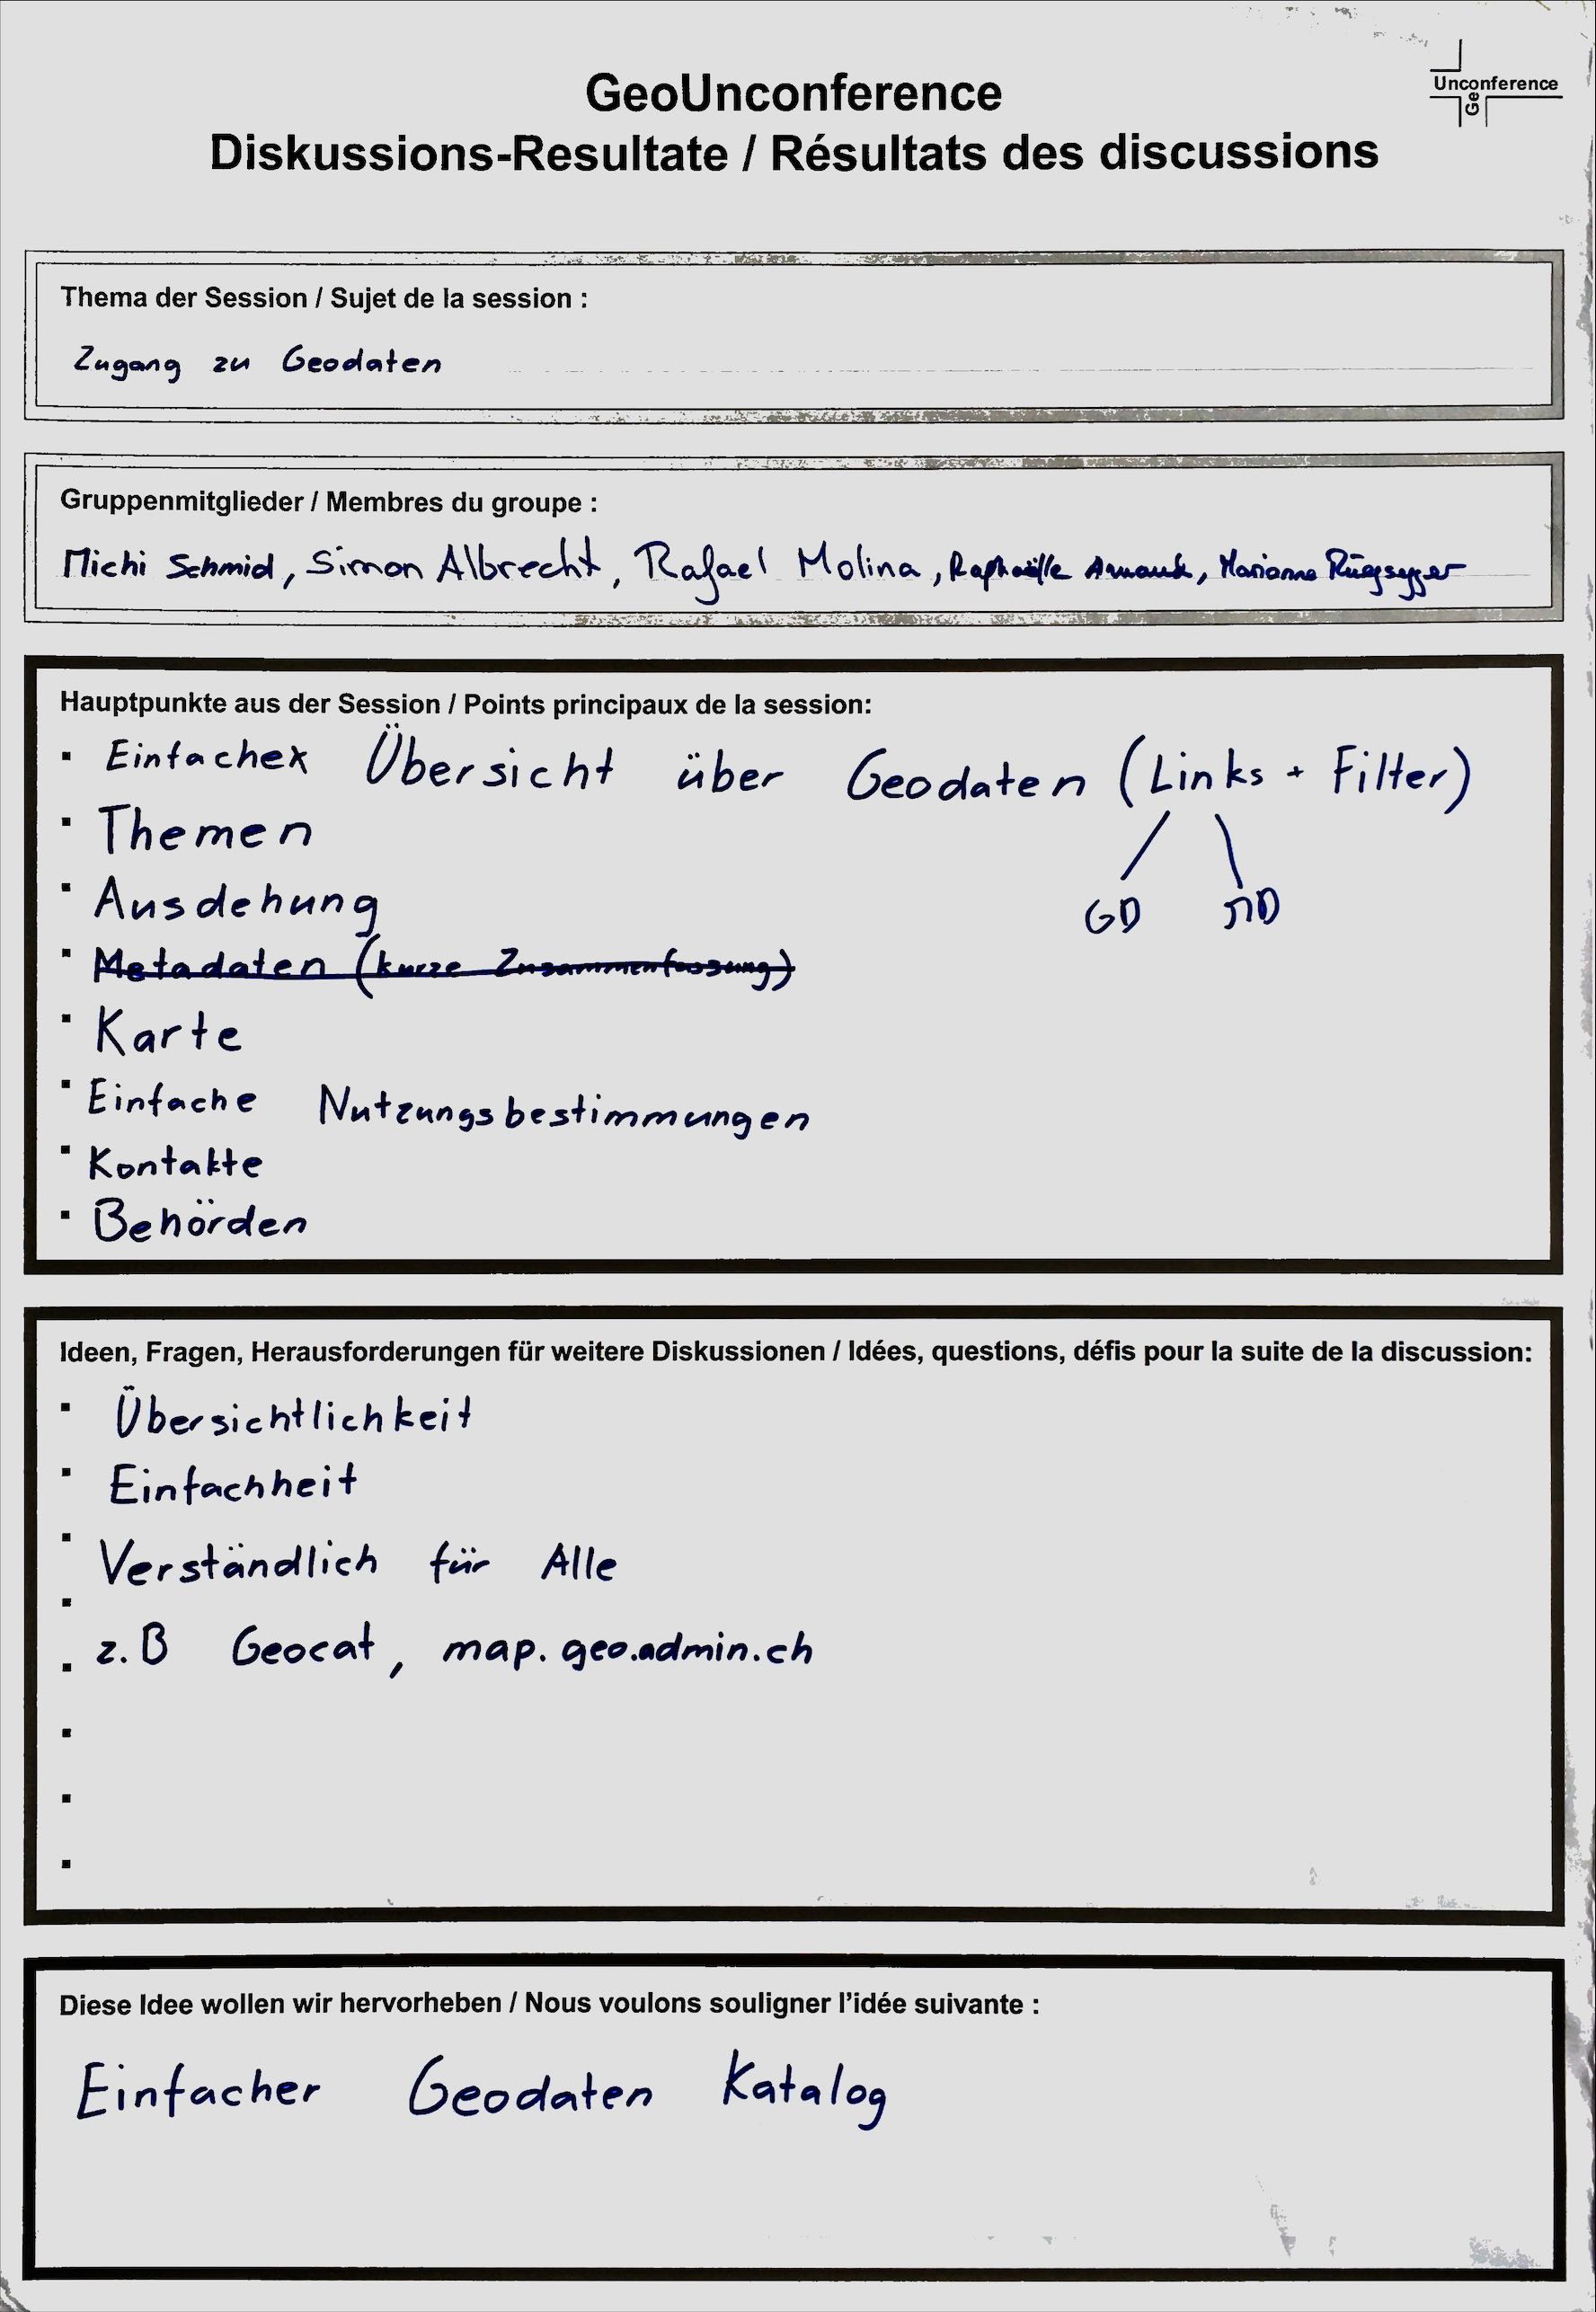 GeoUnconference
Unconference
Geo
Diskussions-Resultate / Résultats des discussions
Thema der Session / Sujet de la session :
Zugang zu Geodaten
Gruppenmitglieder / Membres du groupe :
Michi Schmid, Simon Albrecht, Rafael Molina, Raphaëlle Arnaud, Marianne Rüegsegger
Hauptpunkte aus der Session / Points principaux de la session:
▪ Einfache Übersicht über Geodaten (Links + Filter)
▪ Themen
▪ Ausdehung
GD MD
▪ Metadaten (kurze Zusammenfassung)
▪ Karte
▪ Einfache Nutzungsbestimmungen
▪ Kontakte
▪ Behörden
Ideen, Fragen, Herausforderungen für weitere Diskussionen / Idées, questions, défis pour la suite de la discussion:
▪ Übersichtlichkeit
▪ Einfachheit
▪ Verständlich für Alle
▪ z.B Geocat, map.geo.admin.ch
Diese Idee wollen wir hervorheben / Nous voulons souligner l'idée suivante :
Einfacher Geodaten Katalog